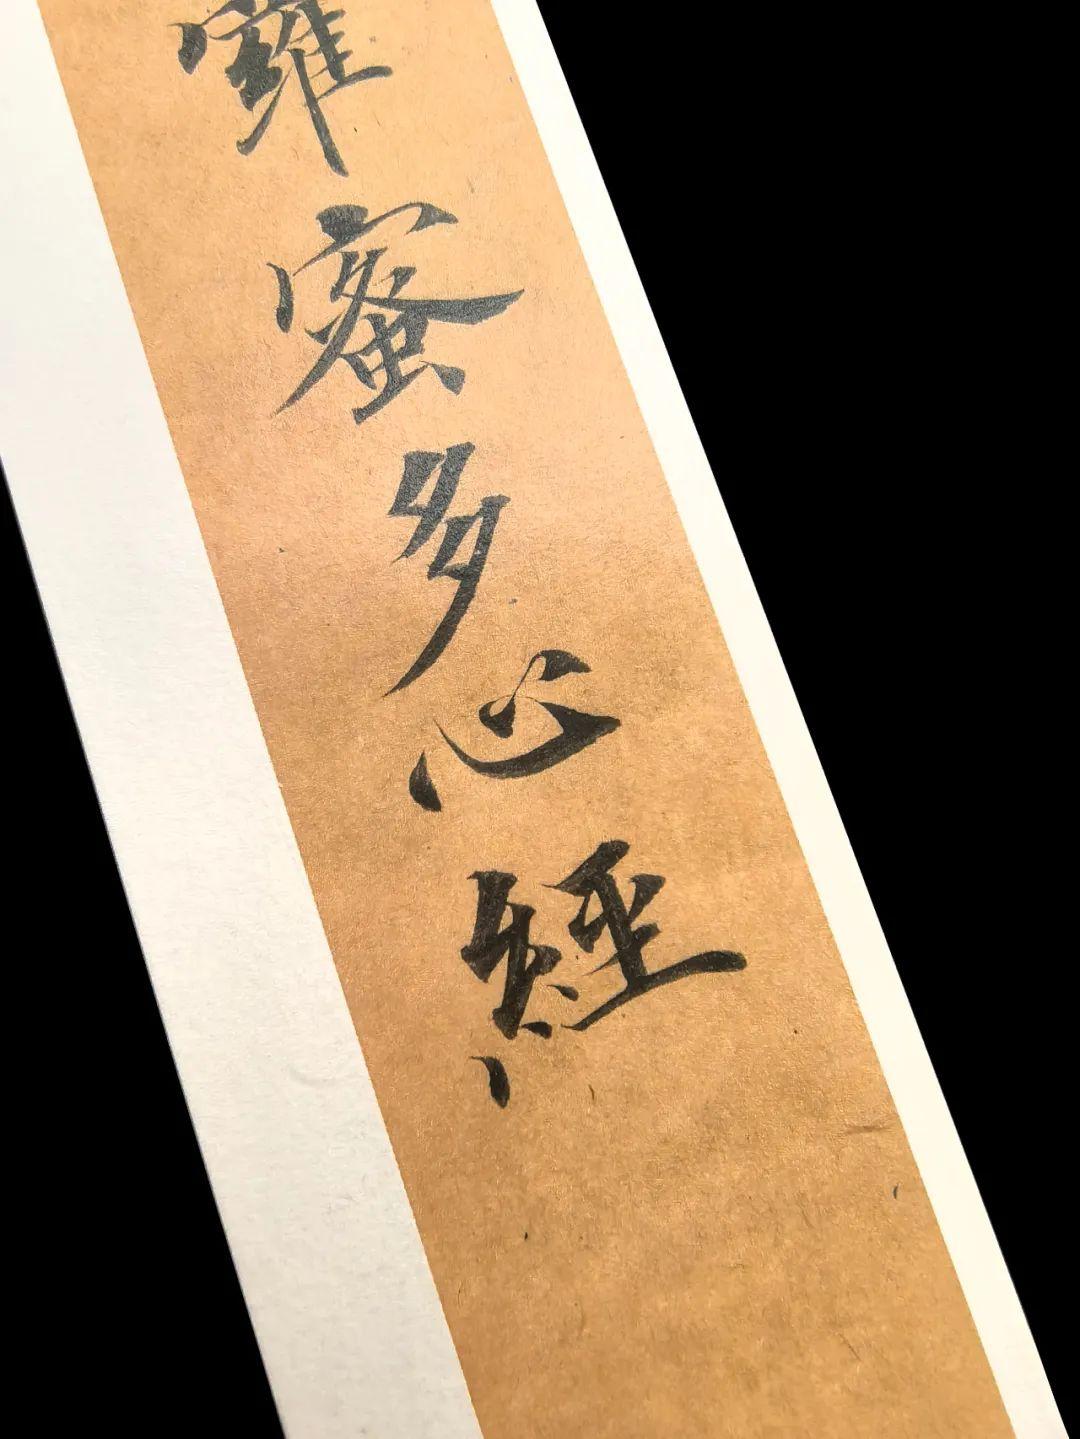 囉蜜多心經